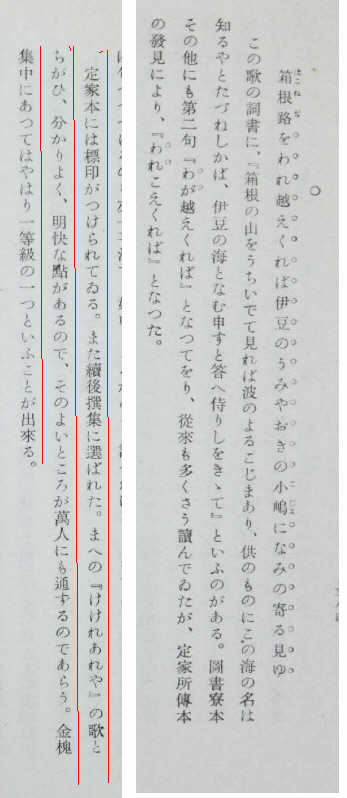 箱根路をわれ越えくれば伊豆のうみやおきの小嶋になみの寄る見ゆ
この歌の詞書に、『箱根の山をうちいでて見れば波のよるこじまあり、供のものにこの海の名は
知るやとたづねしかば、伊豆の海となむ申すと答へ侍りしをきゝて』といふのがある。圖書寮本
その他にも第二句『わが越えくれば』となつてをり、從來も多くさう讀んでゐたが、定家所傳本
の發見により、『われこえくれば』となつた。
定家本には標印がつけられてゐる。また續後撰集に選ばれた。まへの『けけれあれや』の歌と
ちがひ、分かりよく、明快な點があるので、そのよいところが萬人にも通ずるのであらう。金槐
集中にあつてはやはり一等級の一つといふことが出來る。